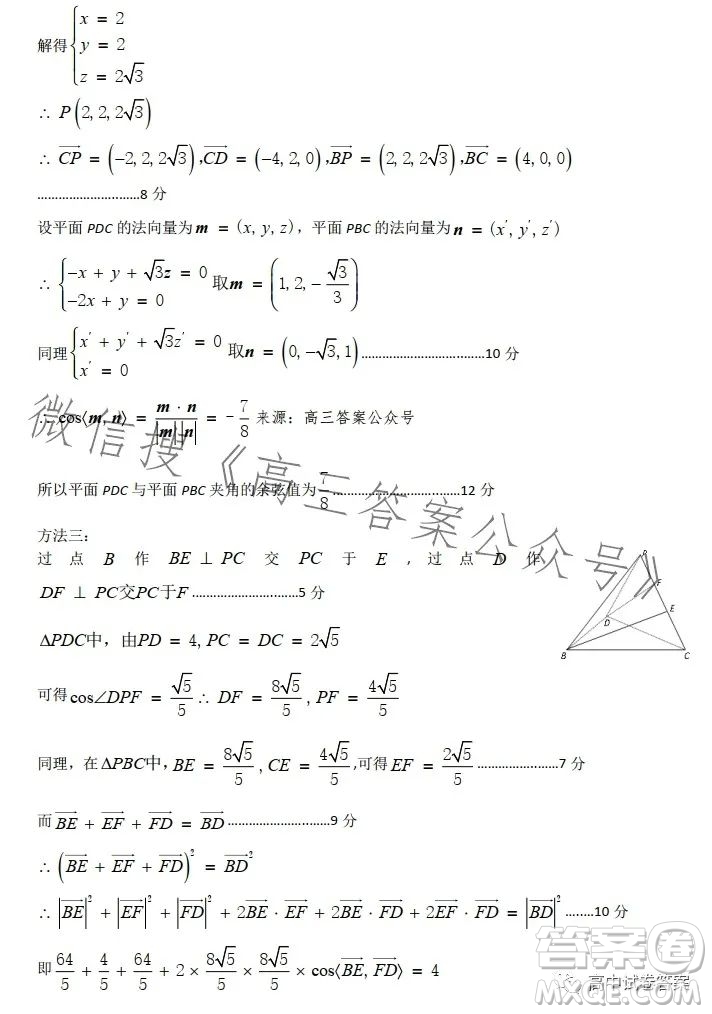 解得 { x = 2
y = 2
z = 2√3
∴ P(2, 2, 2√3)
∴ CP→ = (−2, 2, 2√3), CD→ = (−4, 2, 0), BP→ = (2, 2, 2√3), BC→ = (4, 0, 0)
..........................8 分
设平面 PDC 的法向量为 m = (x, y, z)，平面 PBC 的法向量为 n = (x′, y′, z′)
∴ { −x + y + √3z = 0
−2x + y = 0 取 m = (1, 2, −√3/3)
同理 { x′ + y′ + √3z′ = 0
x′ = 0 取 n = (0, −√3, 1)..................................10 分
∴ cos⟨m, n⟩ = m · n / |m| |n| = − 7/8 来源：高三答案公众号
所以平面 PDC 与平面 PBC 夹角的余弦值为 7/8..................................12 分
方法三：
过 点 B 作 BE ⊥ PC 交 PC 于 E ，过 点 D 作
DF ⊥ PC交PC于F...........................5 分
ΔPDC中，由PD = 4, PC = DC = 2√5
可得 cos∠DPF = √5/5 ∴ DF = 8√5/5, PF = 4√5/5
同理，在 ΔPBC中, BE = 8√5/5, CE = 4√5/5,可得 EF = 2√5/5 ......................7 分
而 BE→ + EF→ + FD→ = BD→..........................9 分
∴ (BE→ + EF→ + FD→)² = BD→²
∴ |BE→|² + |EF→|² + |FD→|² + 2BE→ · EF→ + 2BE→ · FD→ + 2EF→ · FD→ = |BD→|² ........10 分
即 64/5 + 4/5 + 64/5 + 2 × 8√5/5 × 8√5/5 × cos⟨BE→, FD→⟩ = 4
P
F
E
D
B
C
微信搜《高三答案公众号》
答案卷
高中试卷答案